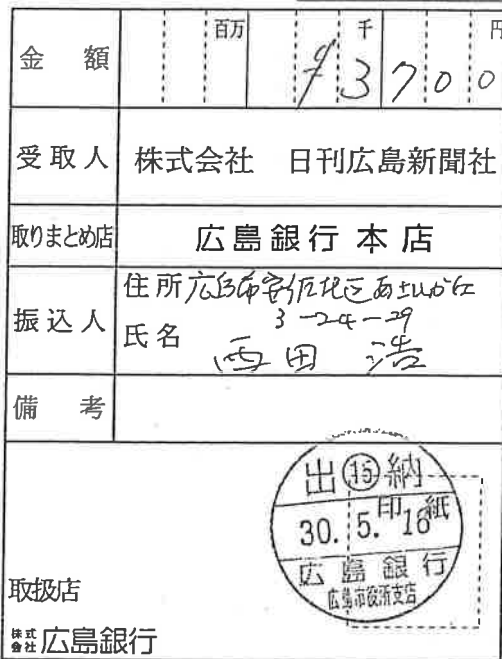 百万 千 円
金額 ¥3700
受取人 株式会社 日刊広島新聞社
取りまとめ店 広島銀行本店
住所 広島市安佐北区あさひが丘
3-24-29
振込人
氏名 西田 浩
備考
出⑮納
印紙
30. 5. 16
広島銀行
広島市役所支店
取扱店
株式会社 広島銀行